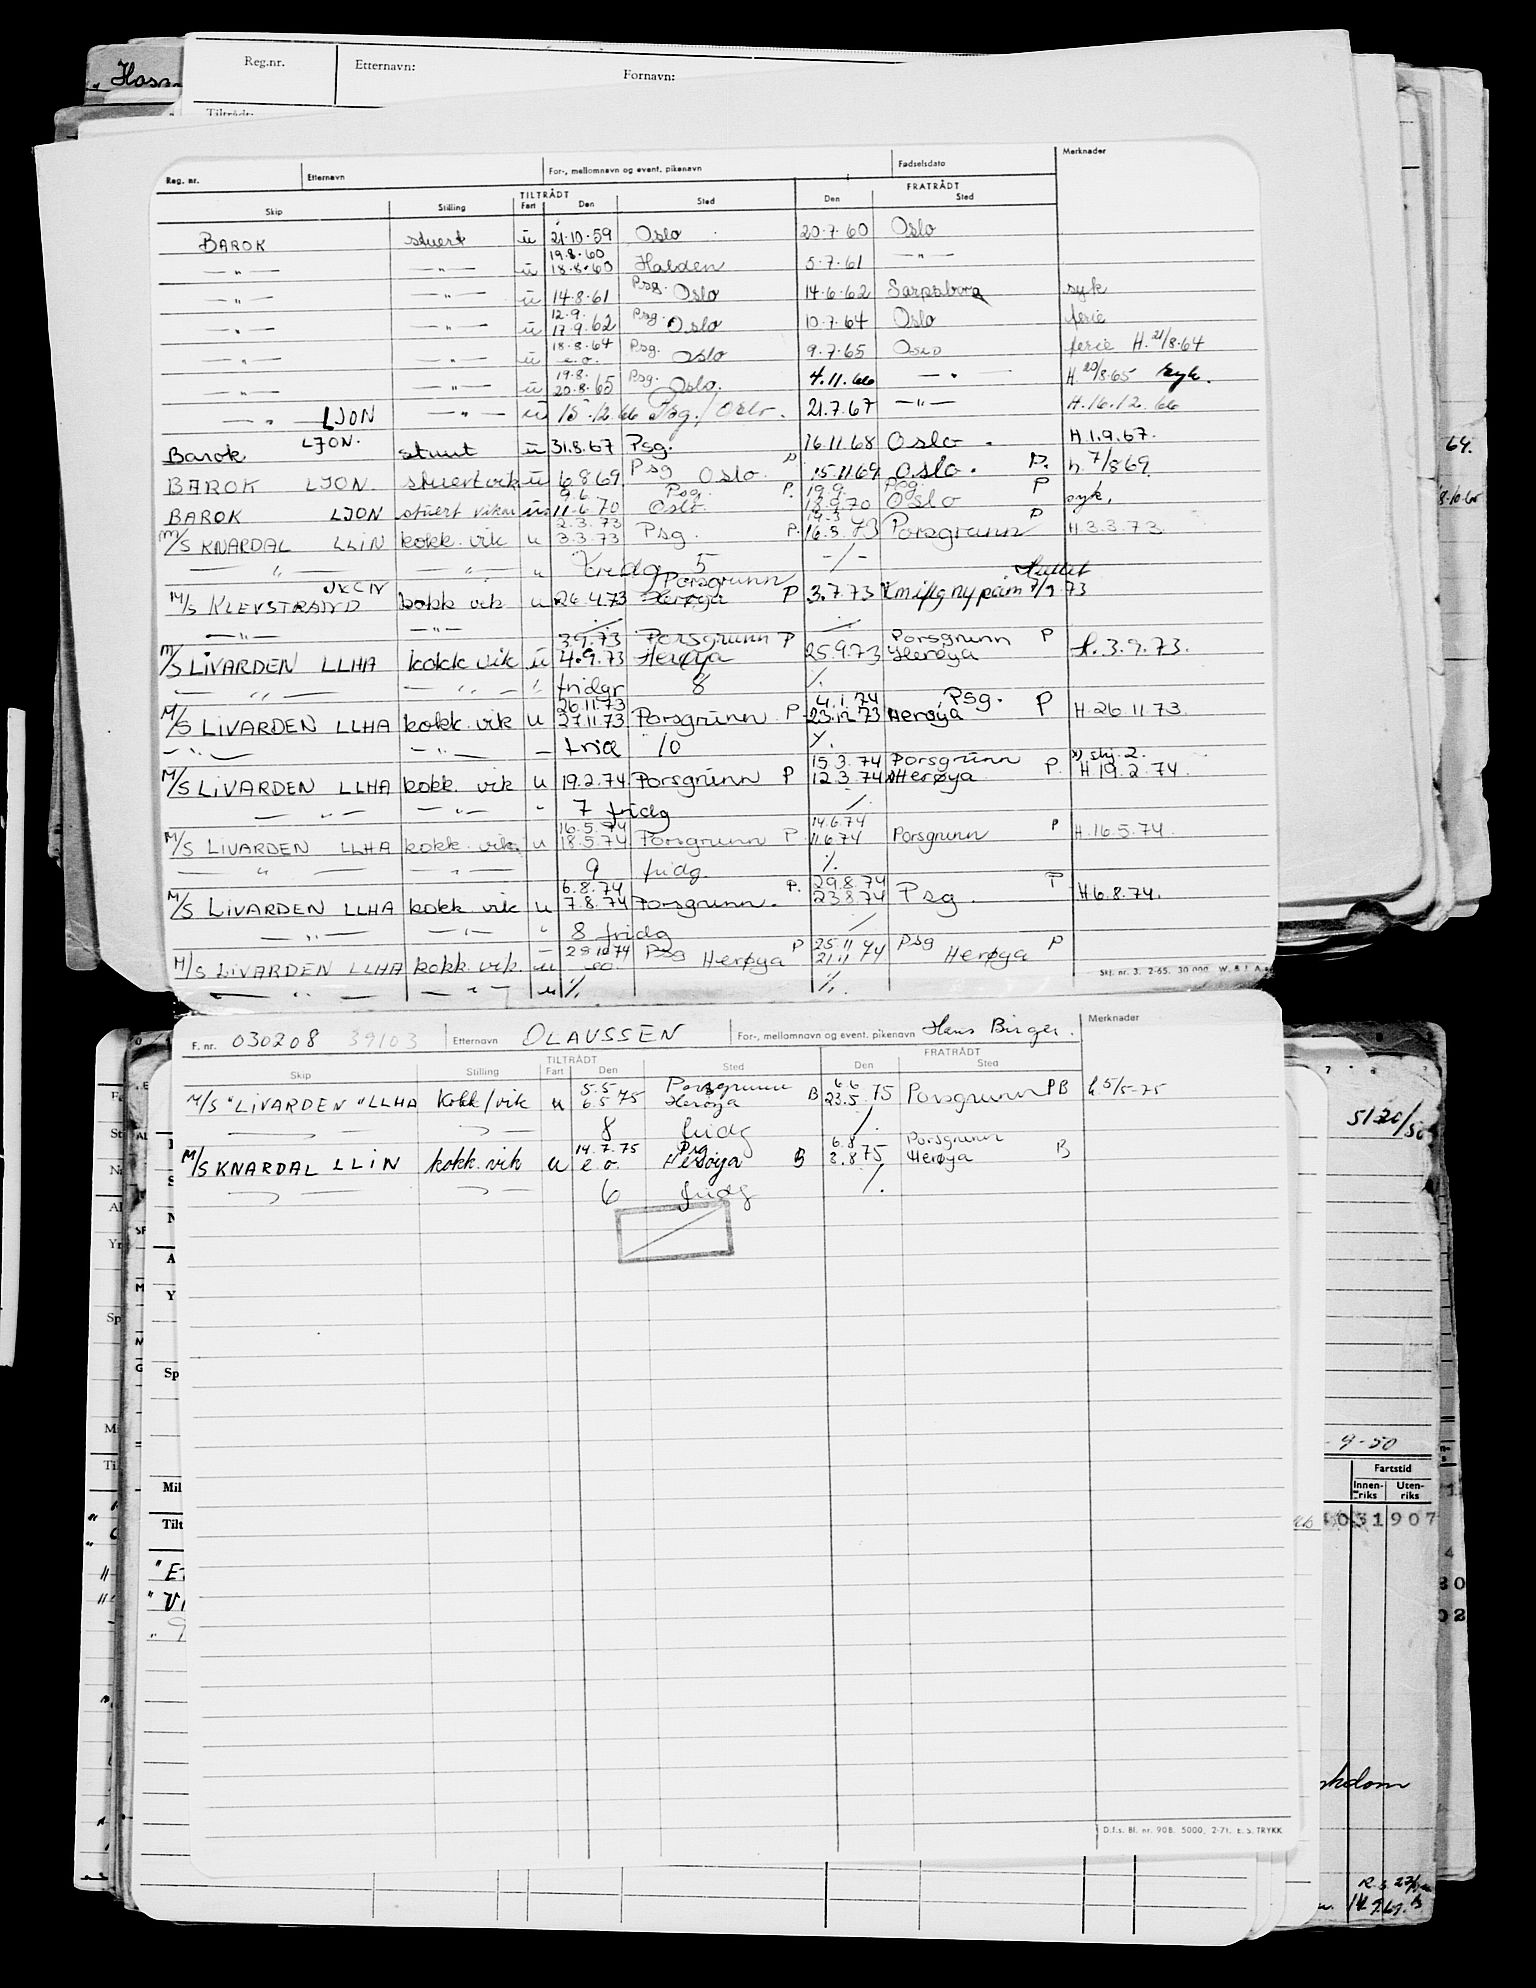 Hosa
Reg.nr. Etternavn: Fornavn:
Tiltrådt:
Reg. nr. Etternavn For-, mellomnavn og event. pikenavn Fødselsdato Merknader
TILTRÅDT FRATRÅDT
Skip Stilling Fart Den Sted Den Sted
BAROK stuert u 21.10.59 Oslo 20.7.60 Oslo
19.8.60
—"— —"— u 18.8.60 Halden 5.7.61 —"—
—"— —"— u 14.8.61 Psg. Oslo 14.6.62 Sarpsborg syk
12.9.
—"— —"— u 17.9.62 Psg. Oslo 10.7.64 Oslo ferie
18.8.64
—"— —"— u e.o. Psg. Oslo 9.7.65 Oslo ferie H. 21/8.64
19.8.
—"— —"— u 20.8.65 Psg. Oslo. 4.11.66 —"— H. 20/8.65 syk.
—"— LJON —"— u 15.12.66 Psg./Oslo. 21.7.67 —"— H.16.12.66
Barok LJON. stuert u 31.8.67 Psg. 16.11.68 Oslo. H.1.9.67.
BAROK LJON. stuert vik u 6.8.69 Psg Oslo. P 15.11.69 Oslo. P. h 7/8 69.
9.6. Psg. P. 19.9. Psg. P
BAROK LJON stuert vikar u 11.6.70 Oslo. 18.9.70 Oslo syk.
2.3.73 19.3 P
M/S KNARDAL LLIN kokk. vik u 3.3.73 Psg. P. 16.3.73 Porsgrunn H.3.3.73.
—"— —"— " fridg 5 -/-
JXCN Porsgrunn
M/S KLEVSTRAND kokk vik u 26.4.73 Herøya P 3.7.73 7/9.73
—"— —"— ./. ./.
3.9.73 Porsgrunn P Porsgrunn P
M/S LIVARDEN LLHA kokk vik u 4.9.73 Herøya 25.9.73 Herøya H. 3.9.73.
—"— —"— " fridgr 8 ./.
26.11.73 4.1.74 Psg. P
M/S LIVARDEN LLHA kokk. vik u 27.11.73 Porsgrunn P 23.12.73 Herøya H.26.11.73.
—"— —"— — frid 10 ./.
15.3.74 Porsgrunn
M/S LIVARDEN LLHA kokk. vik u 19.2.74 Porsgrunn P 12.3.74 Herøya P. H 19.2.74.
—"— —"— " 7 fridg ./.
16.5.74 14.6.74
M/S LIVARDEN LLHA kokk. vik. u 18.5.74 Porsgrunn P 11.6.74 Porsgrunn P H.16.5.74.
—"— —"— 9 fridg ./.
6.8.74 P. 29.8.74 P
M/S LIVARDEN LLHA kokk vik u 7.8.74 Porsgrunn. 23.8.74 Psg. H6.8.74.
—"— —"— " 8 fridg /
29.10.74 Psg P 25.11 Psg P
M/S LIVARDEN LLHA kokk. vik. u eo. Herøya 21.11 74 Herøya
—"— —"— u ./. ./.
Skj. nr. 3. 2-65. 30 000 W. B. I. A.s
F. nr. 030208 39103 Etternavn OLAUSSEN For-, mellomnavn og event. pikenavn Hans Birger. Merknader
TILTRÅDT FRATRÅDT
Skip Stilling Fart Den Sted Den Sted
5.5 Porsgrunn 6.6
M/S "LIVARDEN" LLHA Kokk/vik u 6.5 75 Herøya B 23.5. 75 Porsgrunn PB h 5/5-75
8 fridg ./.
14.7.75 Psg 6.8 Porsgrunn
M/S KNARDAL LLIN kokk. vik u e.o. Herøya B 2.8 75 Herøya B
6 fridg ./.
D.f.s. Bl. nr. 90B. 5000. 2-71. E.S. TRYKK
64.
5126/50
-9-50
Fartstid
Innenriks Utenriks
031907
Mil
Tilt
R.S.
14.9.61. B